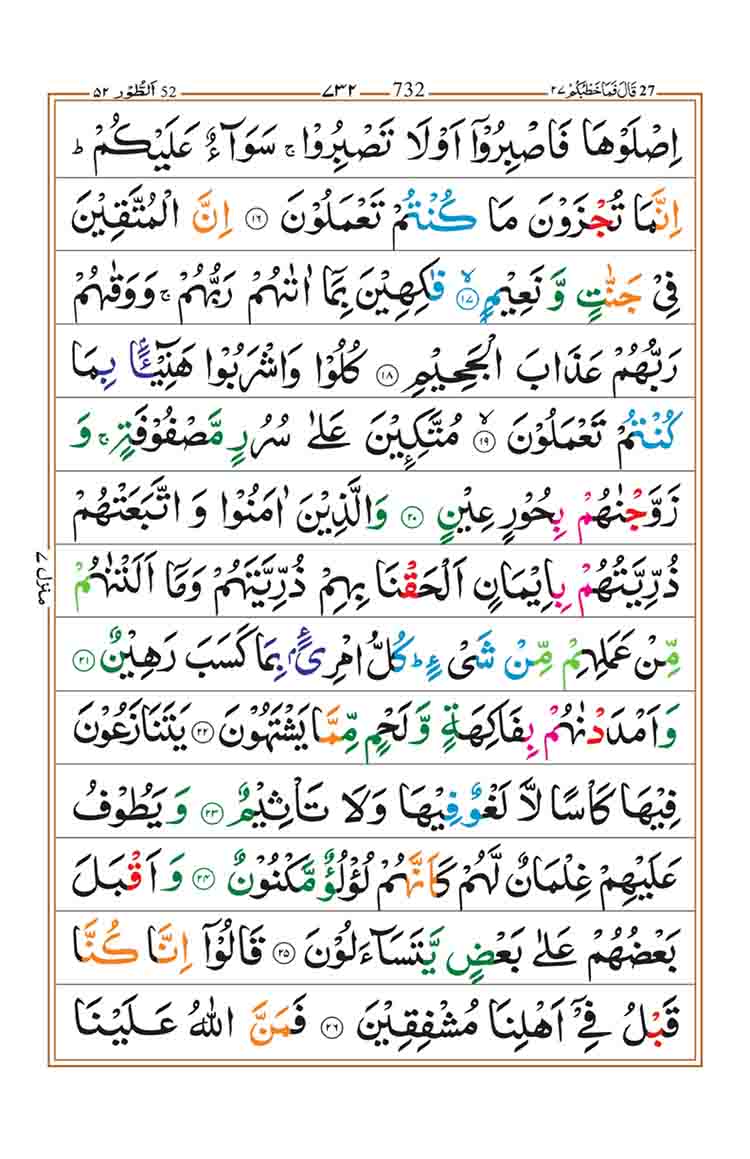 27 قَالَ فَمَاخَطْبُكُمْ ٢٧ 732 ٧٣٢ 52 اَلطُّوْر ٥٢
اِصْلَوْهَا فَاصْبِرُوْۤا اَوْلَا تَصْبِرُوْاۚ سَوَآءٌ عَلَيْكُمْؕ
اِنَّمَا تُجْزَوْنَ مَا كُنْتُمْ تَعْمَلُوْنَ ١٦ اِنَّ الْمُتَّقِيْنَ
فِيْ جَنّٰتٍ وَّ نَعِيْمٍۙ ١٧ فٰكِهِيْنَ بِمَاۤ اٰتٰىهُمْ رَبُّهُمْۚ وَوَقٰىهُمْ
رَبُّهُمْ عَذَابَ الْجَحِيْمِ ١٨ كُلُوْا وَاشْرَبُوْا هَنِيْٓـًٔۢا بِمَا
كُنْتُمْ تَعْمَلُوْنَۙ ١٩ مُتَّكِـِٕيْنَ عَلٰى سُرُرٍ مَّصْفُوْفَةٍۚ وَ
زَوَّجْنٰهُمْ بِحُوْرٍ عِيْنٍ ٢٠ وَالَّذِيْنَ اٰمَنُوْا وَ اتَّبَعَتْهُمْ
ذُرِّيَّتُهُمْ بِاِيْمَانٍ اَلْحَقْنَا بِهِمْ ذُرِّيَّتَهُمْ وَمَاۤ اَلَتْنٰهُمْ
مِّنْ عَمَلِهِمْ مِّنْ شَيْءٍؕ كُلُّ امْرِئٍۢ بِمَا كَسَبَ رَهِيْنٌ ٢١
وَاَمْدَدْنٰهُمْ بِفَاكِهَةٍ وَّلَحْمٍ مِّمَّا يَشْتَهُوْنَ ٢٢ يَتَنَازَعُوْنَ
فِيْهَا كَاْسًا لَّا لَغْوٌ فِيْهَا وَلَا تَاْثِيْمٌ ٢٣ وَ يَطُوْفُ
عَلَيْهِمْ غِلْمَانٌ لَّهُمْ كَاَنَّهُمْ لُؤْلُؤٌ مَّكْنُوْنٌ ٢٤ وَ اَقْبَلَ
بَعْضُهُمْ عَلٰى بَعْضٍ يَّتَسَآءَلُوْنَ ٢٥ قَالُوْۤا اِنَّا كُنَّا
قَبْلُ فِيْۤ اَهْلِنَا مُشْفِقِيْنَ ٢٦ فَمَنَّ اللّٰهُ عَلَيْنَا
منزل ٧